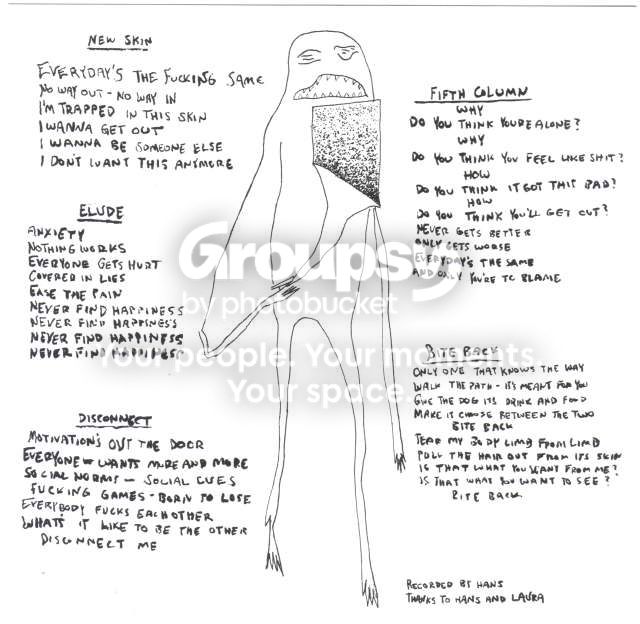 NEW SKIN
EVERYDAY'S THE FUCKING SAME
NO WAY OUT - NO WAY IN
I'M TRAPPED IN THIS SKIN
I WANNA GET OUT
I WANNA BE SOMEONE ELSE
I DON'T WANT THIS ANYMORE
ELUDE
ANXIETY
NOTHING WORKS
EVERYONE GETS HURT
COVERED IN LIES
EASE THE PAIN
NEVER FIND HAPPINESS
NEVER FIND HAPPINESS
NEVER FIND HAPPINESS
NEVER FIND HAPPINESS
DISCONNECT
MOTIVATION'S OUT THE DOOR
EVERYONE WANTS MORE AND MORE
SOCIAL NORMS - SOCIAL CUES
FUCKING GAMES - BORN TO LOSE
EVERYBODY FUCKS EACHOTHER
WHATS IT LIKE TO BE THE OTHER
DISCONNECT ME
FIFTH COLUMN
WHY
DO YOU THINK YOU'RE ALONE?
WHY
DO YOU THINK YOU FEEL LIKE SHIT?
HOW
DO YOU THINK IT GOT THIS BAD?
HOW
DO YOU THINK YOU'LL GET OUT?
NEVER GETS BETTER
ONLY GETS WORSE
EVERYDAY'S THE SAME
AND ONLY YOU'RE TO BLAME
BITE BACK
ONLY ONE THAT KNOWS THE WAY
WALK THE PATH - IT'S MEANT FOR YOU
GIVE THE DOG ITS DRINK AND FOOD
MAKE IT CHOOSE BETWEEN THE TWO
BITE BACK
TEAR MY BODY LIMB FROM LIMB
PULL THE HAIR OUT FROM ITS SKIN
IS THAT WHAT YOU WANT FROM ME?
IS THAT WHAT YOU WANT TO SEE?
BITE BACK
RECORDED BY HANS
THANKS TO HANS AND LAURA
Groupsy
by photobucket
Your people. Your moments.
Your space.